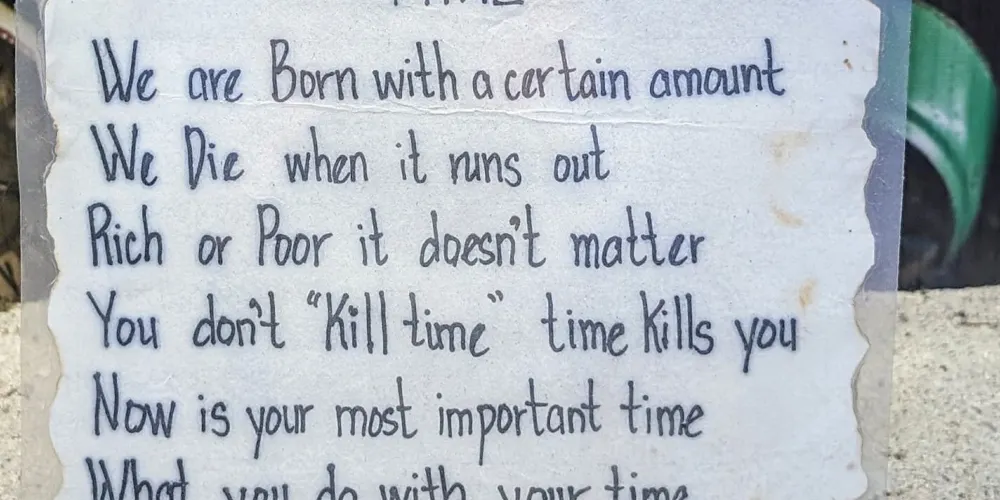 We are Born with a certain amount
We Die when it runs out
Rich or Poor it doesn't matter
You don't "Kill time" time Kills you
Now is your most important time
What you do with your time